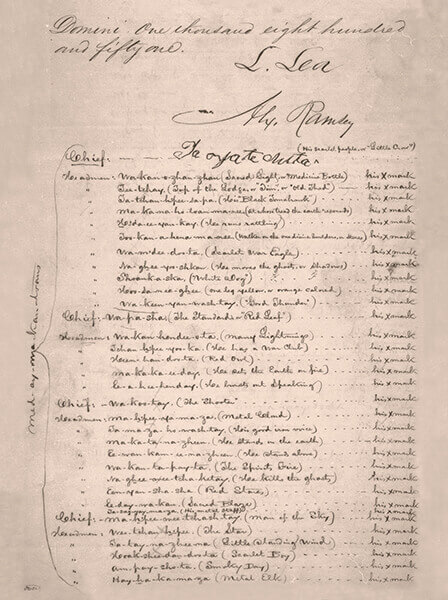 Domini one thousand eight hundred
and fifty one.
L. Lea
Alx. Ramsey
Chief: — — Ta oyate duta. (His scarlet people, or "Little Crow")
Headmen: Wa-kan-o-zhan-zhan (Sacred Light, or Medicine Bottle) his x mark
" Tee-tchay. (Top of the Lodge, or "Jim", or "Old Thad") his x mark
" Ta-tchan-hpee-sa-pa. (His Black Tomahawk) his x mark
" Ma-ka-na-ho-toan-manee. (At whose tread the earth resounds) his x mark
" H'da-ee-yan-kay. (He runs rattling) his x mark
" Too-kan-a-hena-ma-nee. (Walker on the medicine boulders, or stones) his x mark
" Wa-m'dee-doo-ta. (Scarlet War Eagle) his x mark
" Na-ghee-yo-shkan. (He moves the ghost, or Shadow) his x mark
" Shoank-a-ska. (White Dog) his x mark
" Hoo-sa-nee-ghee. (one leg yellow, or orange colored) his x mark
" Wa-keen-yan-wash-tay. ("Good Thunder") his x mark
Chief: Wa-pa-sha. (The Standard, or "Red Leaf") his x mark
Headmen: Wa-kan-hendee-o-ta. (many Lightnings) his x mark
" Tchan-hpee-yoo-ka. (He has a War Club) his x mark
" Heen-han-doo-ta. (Red Owl) his x mark
" Ma-ka-ka-ee-day. (He sets the Earth on fire) his x mark
" Ee-a-hee-h'day. (He bursts out Speaking) his x mark
Chief:- Wa-koo-tay. (The Shooter) his x mark
Headmen: Ma-hpee-ya-ma-za. (Metal Cloud) his x mark
" Ta-ma-za-ho-wash-tay. (His good iron voice) his x mark
" Ma-ka-ta-na-zheen. (He stands on the earth) his x mark
" Ee-wan-kam-ee-na-zheen. (He stands above) his x mark
" Wa-kan-ta-pay-ta. (The Spirit's Fire) his x mark
" Na-ghee-mee-tcha-ketay. (He kills the ghost) his x mark
" Een-yan-sha-sha. (Red Stones) his x mark
" Ee-day-wa-kan. (Sacred Blaze) his x mark
" Ta-sag-yay-ma-za. (His metal staff) his x mark
Chief:- Ma-hpee-mee-tchash-tay. (man of the Sky) his x mark
Headmen: Wee-tchan-hpee. (The Star) his x mark
" Ta-tay-na-zhee-na. (Little Standing Wind) his x mark
" Heak-shee-day-doo-ta. (Scarlet Boy) his x mark
" Am-pay-sho-ta. (Smoky Day) his x mark
" Hay-ha-ka-ma-za. (Metal Elk) his x mark
Med-ay-wa-kan-toans